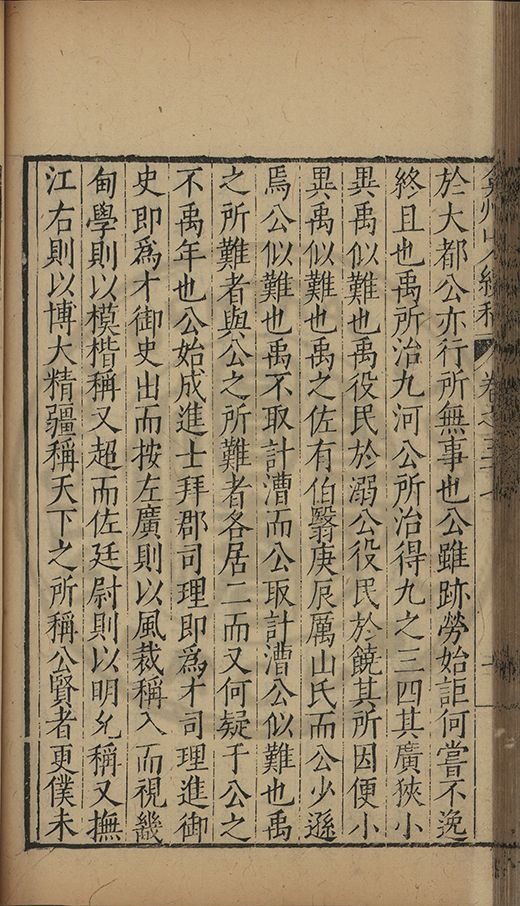 弇州山人續稿 卷之三十七
於大都公亦行所無事也公雖跡勞始詎何嘗不逸
終且也禹所治九河公所治得九之三四其廣狹小
異禹似難也禹役民於溺公役民於饒其所因便小
異禹似難也禹之佐有伯翳庚辰厲山氏而公少遜
焉公似難也禹不取計漕而公取計漕公似難也禹
之所難者與公之所難者各居二而又何疑于公之
不禹年也公始成進士拜郡司理即爲才司理進御
史即爲才御史出而按左廣則以風裁稱入而視畿
甸學則以模楷稱又超而佐廷尉則以明允稱又撫
江右則以博大精疆稱天下之所稱公賢者更僕未